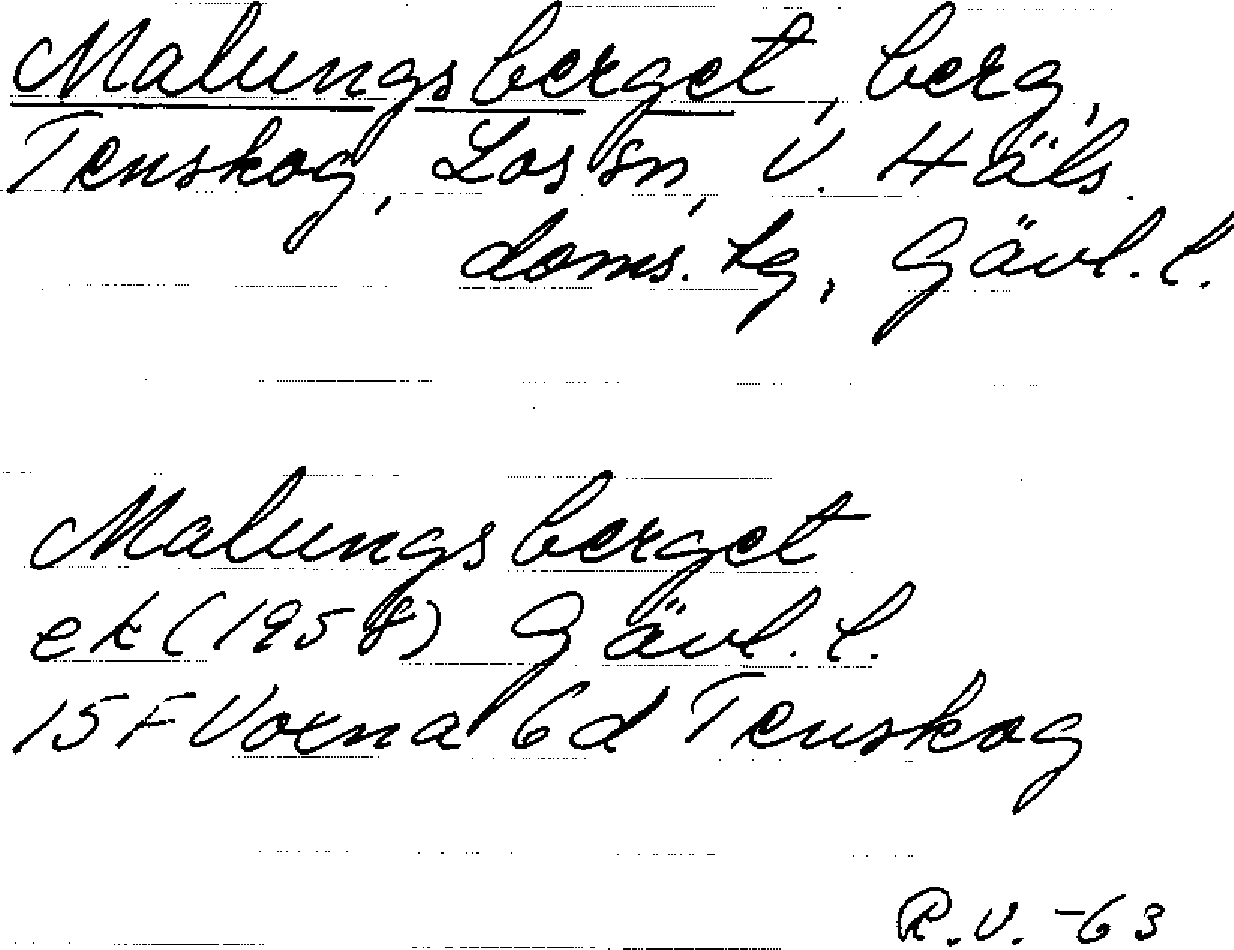 Malungsberget, berg,
Tenskog, Los sn, V. Häls.
doms. tg, Gävl. l.
Malungsberget
ek (1958) Gävl. l.
15F Voxna 6d Tenskog
R.V. -63